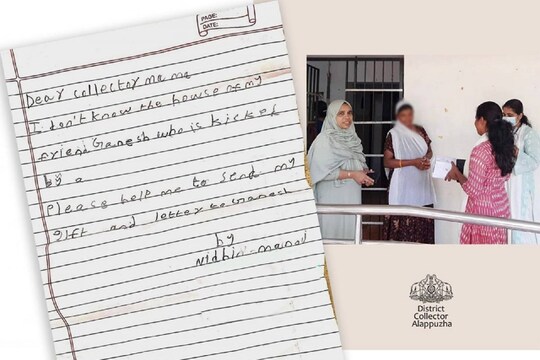 PAGE:
DATE:
Dear collector mame
I don't know the house of my
friend Ganesh who is kicked
by a
please help me to send my
gift and letter to Ganesh
by
Nidhin-manoj
District
Collector
Alappuzha